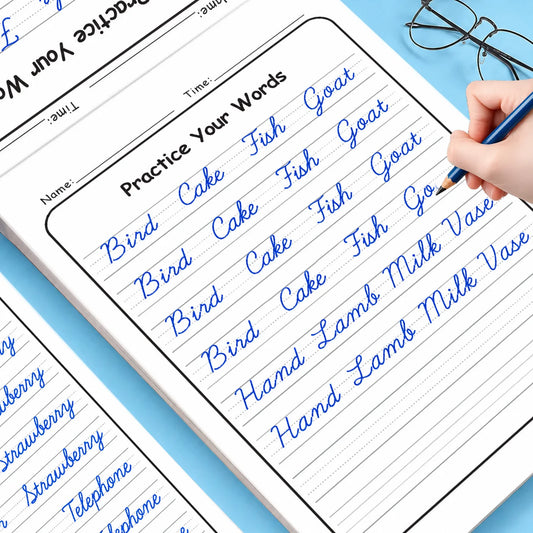 Practice Your Wo
Name:
Time:
Name:
Time:
Practice Your Words
Bird Cake Fish Goat
Bird Cake Fish Goat
Bird Cake Fish Goat
Bird Cake Fish Go
Hand Lamb Milk Vase
Hand Lamb Milk Vase
Strawberry
Strawberry
Telephone
Telephone